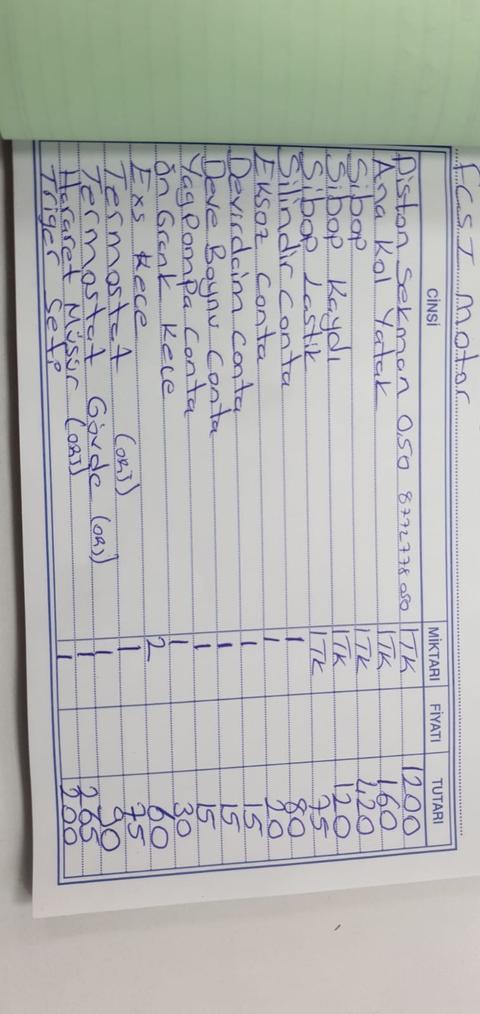 motor
CİNSİ MİKTARI FİYATI TUTARI
Piston Sekman 0,50 8772778 050 1TK 1200
Ana Kol Yatak 1TK 160
Sibop 1TK 420
Sibop Kaydı 1TK 120
Sibop Lastik 1TK 75
Silindir conta 1 80
Eksoz conta 1 20
Devirdaim conta 1 15
Deve Boynu conta 1 15
Yagpompa conta 1 15
Ön Grank Kece 1 30
Exs Kece 2 60
Termostat (ORJ) 1 75
Termostat Gövde (ORJ) 1 90
Hararet Müsür (ORJ) 1 265
Triger Setp 1 200